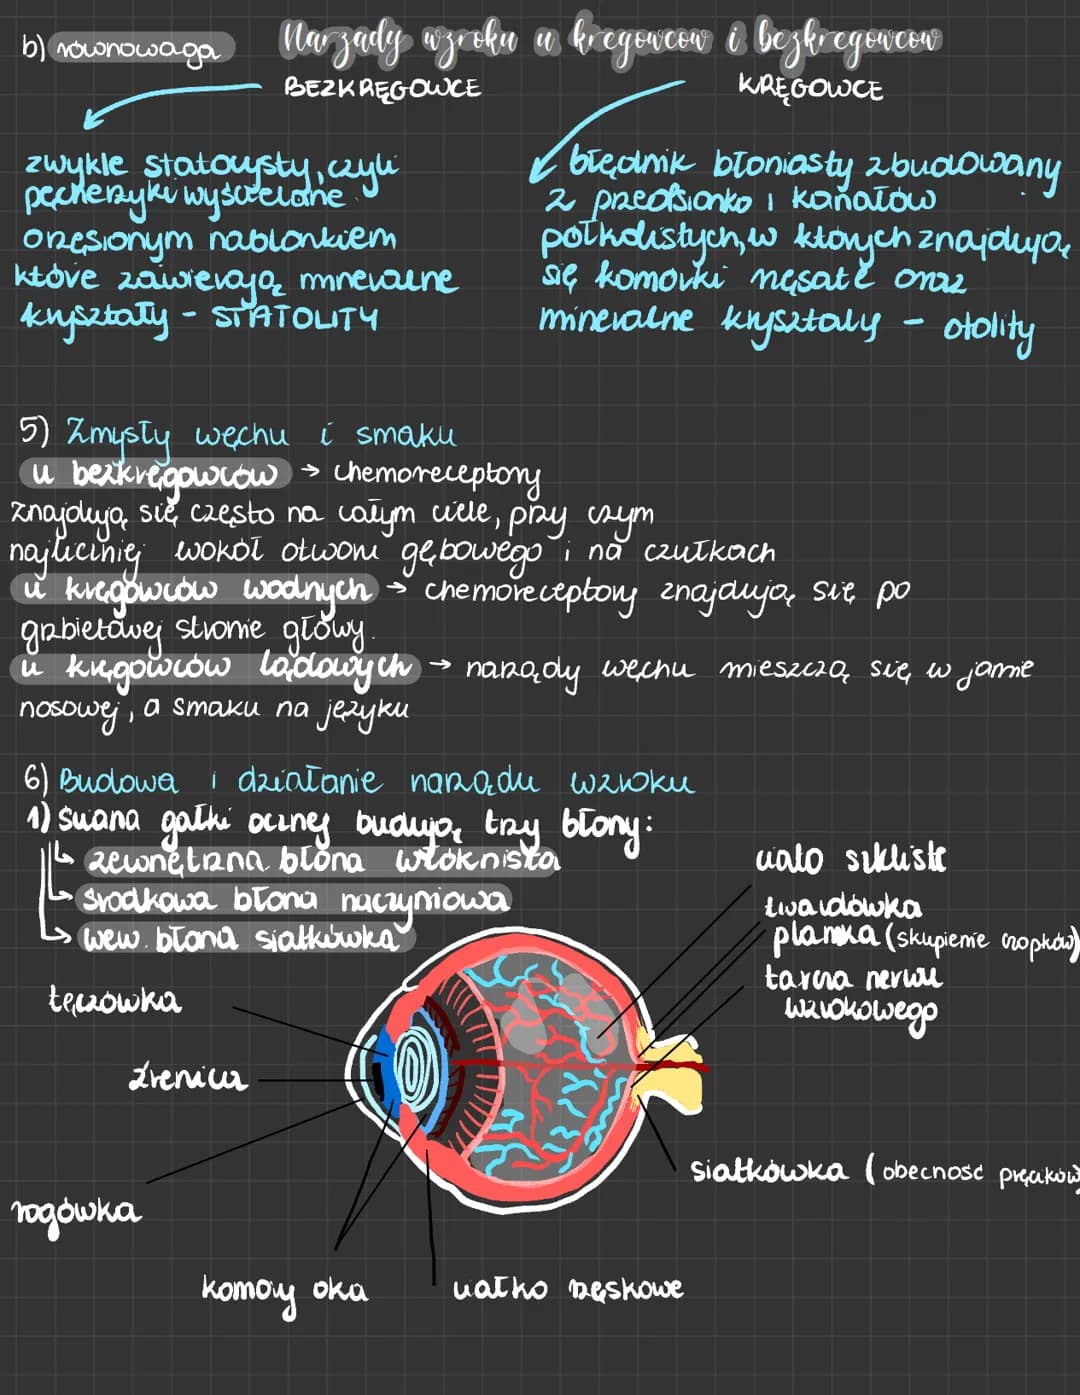 b) równowaga
Narządy wzroku u kręgowców i bezkręgowców
BEZKRĘGOWCE
KRĘGOWCE
zwykle statocysty, czyli
pęcherzyki wyścielane
orzęsionym nabłonkiem
które zawierają mineralne
kryształy - STATOLITY
błędnik błoniasty zbudowany
z przedsionka i kanałów
półkolistych, w których znajdują
się komórki rzęsate oraz
mineralne kryształy - otolity
5) Zmysły węchu i smaku
u bezkręgowców → chemoreceptory
znajdują się często na całym ciele, przy czym
najliczniej wokół otworu gębowego i na czułkach
u kręgowców wodnych → chemoreceptory znajdują się po
grzbietowej stronie głowy.
u kręgowców lądowych → narządy węchu mieszczą się w jamie
nosowej, a smaku na języku
6) Budowa i działanie narządu wzroku
1) Ściana gałki ocznej budują trzy błony:
↳ zewnętrzna błona włóknista
↳ środkowa błona naczyniowa
↳ wew. błona siatkówka
ciało szkliste
twardówka
plamka (skupienie czopków)
tarcza nerwu
wzrokowego
tęczówka
źrenica
siatkówka (obecność pręcików
rogówka
komory oka
ciałko rzęskowe